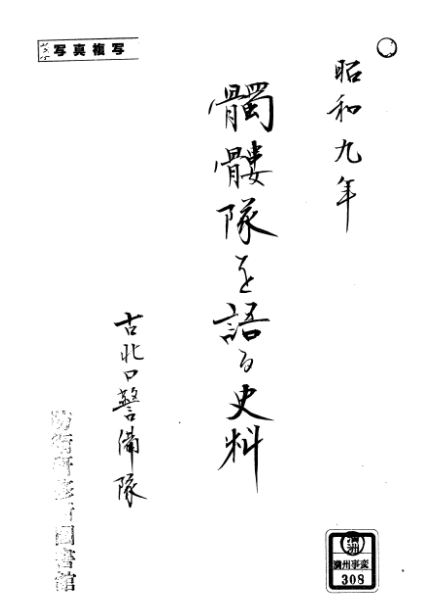 写真複写
昭和九年
髑髏隊を語る史料
古北口警備隊
防衛研修所図書館
満洲
満州事変
308